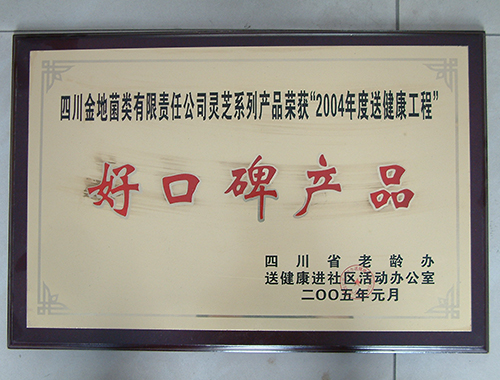 四川金地菌类有限责任公司灵芝系列产品荣获“2004年度送健康工程”
好口碑产品
四川省老龄办
送健康进社区活动办公室
二〇〇五年元月